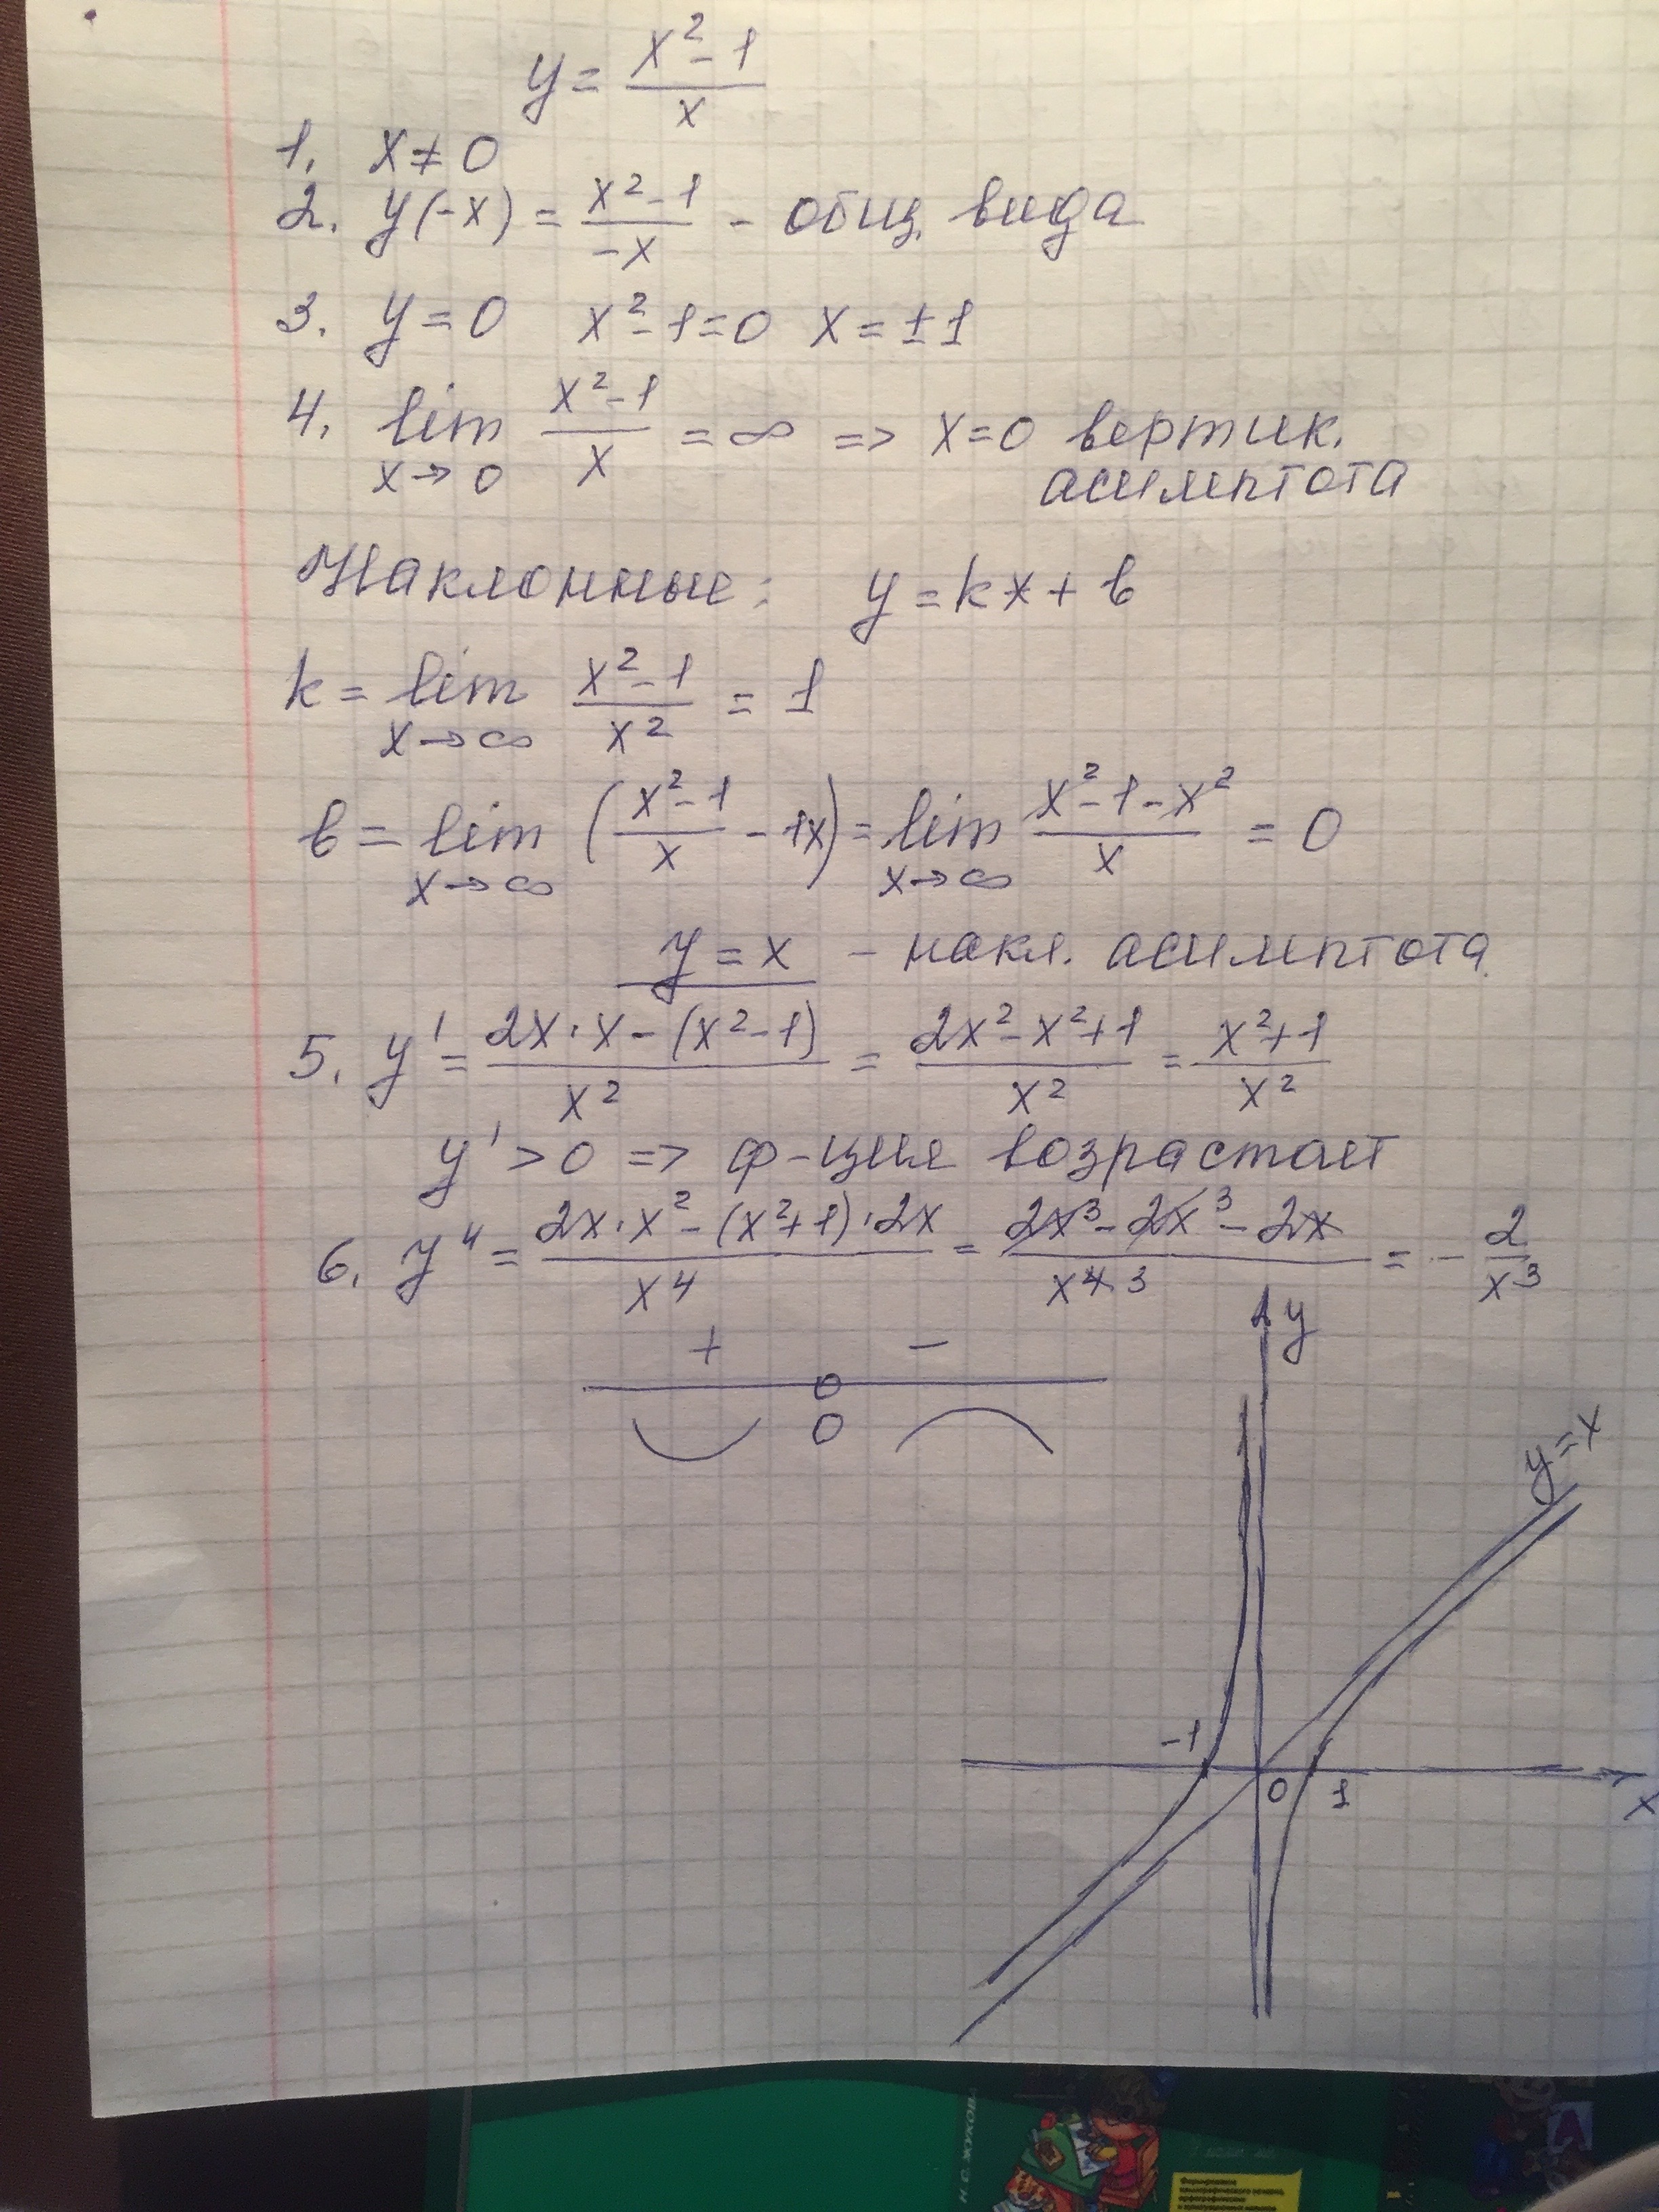 y = \frac{x^2-1}{x}
1. x ≠ 0
2. y(-x) = \frac{x^2-1}{-x} - общ. вида
3. y = 0 x^2-1=0 x = ±1
4. \lim_{x→0} \frac{x^2-1}{x} = ∞ => x=0 вертик.
асимптота
Наклонные: y = kx + b
k = \lim_{x→∞} \frac{x^2-1}{x^2} = 1
b = \lim_{x→∞} (\frac{x^2-1}{x} - 1x) = \lim_{x→∞} \frac{x^2-1-x^2}{x} = 0
y = x - накл. асимптота
5. y' = \frac{2x·x-(x^2-1)}{x^2} = \frac{2x^2-x^2+1}{x^2} = \frac{x^2+1}{x^2}
y' > 0 => ф-ция возрастает
6. y'' = \frac{2x·x^2-(x^2+1)·2x}{x^4} = \frac{2x^3-2x^3-2x}{x^{4 3}} = -\frac{2}{x^3}
+ -
0
y
y=x
-1
0 1
x
Н.С. ЖУКОВА